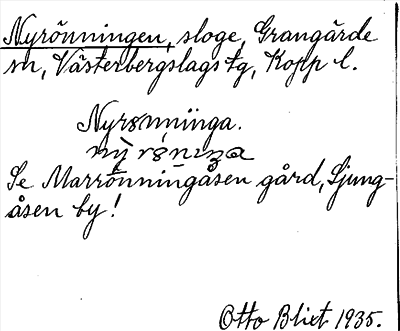 Nyrönningen, sloge, Grangärde
sn, Västerbergslags tg, Kopp l.
Nyrønniŋga.
Se Marrönningåsen gård, Ljung-
åsen by!
Otto Blixt 1935.